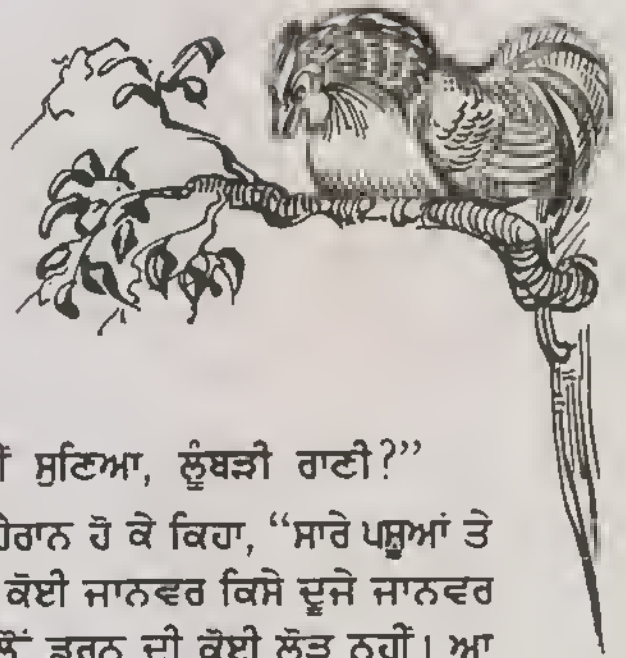 ਸੁਣਿਆ, ਲੂੰਬੜੀ ਰਾਣੀ?”
ਹੈਰਾਨ ਹੋ ਕੇ ਕਿਹਾ, “ਸਾਰੇ ਪਸ਼ੂਆਂ ਤੇ
ਕੋਈ ਜਾਨਵਰ ਕਿਸੇ ਦੂਜੇ ਜਾਨਵਰ
ਡਰਨ ਦੀ ਕੋਈ ਲੋੜ ਨਹੀਂ। ਆ